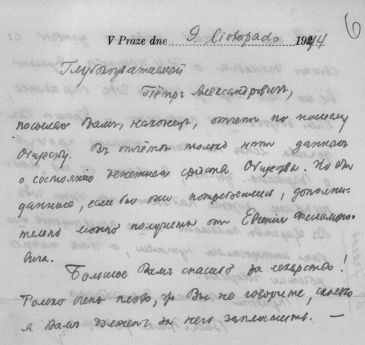 6
V Praze dne 9 listopadu 1944
Глубокоуважаемый
Пётръ Александровичъ,
посылаю Вамъ, наконецъ, отчетъ по нашему
Обществу. Въ отчётѣ только нѣтъ данныхъ
о состоянiи денежныхъ средствъ Общества. Но эти
данные, если бы они потребовались, дополни-
тельно можно получить от Евгенiя Филимоно-
вича.
Большое Вамъ спасибо за лекарство!
Только очень плохо, что Вы не говорите, сколько
я Вамъ долженъ за него заплатить. —